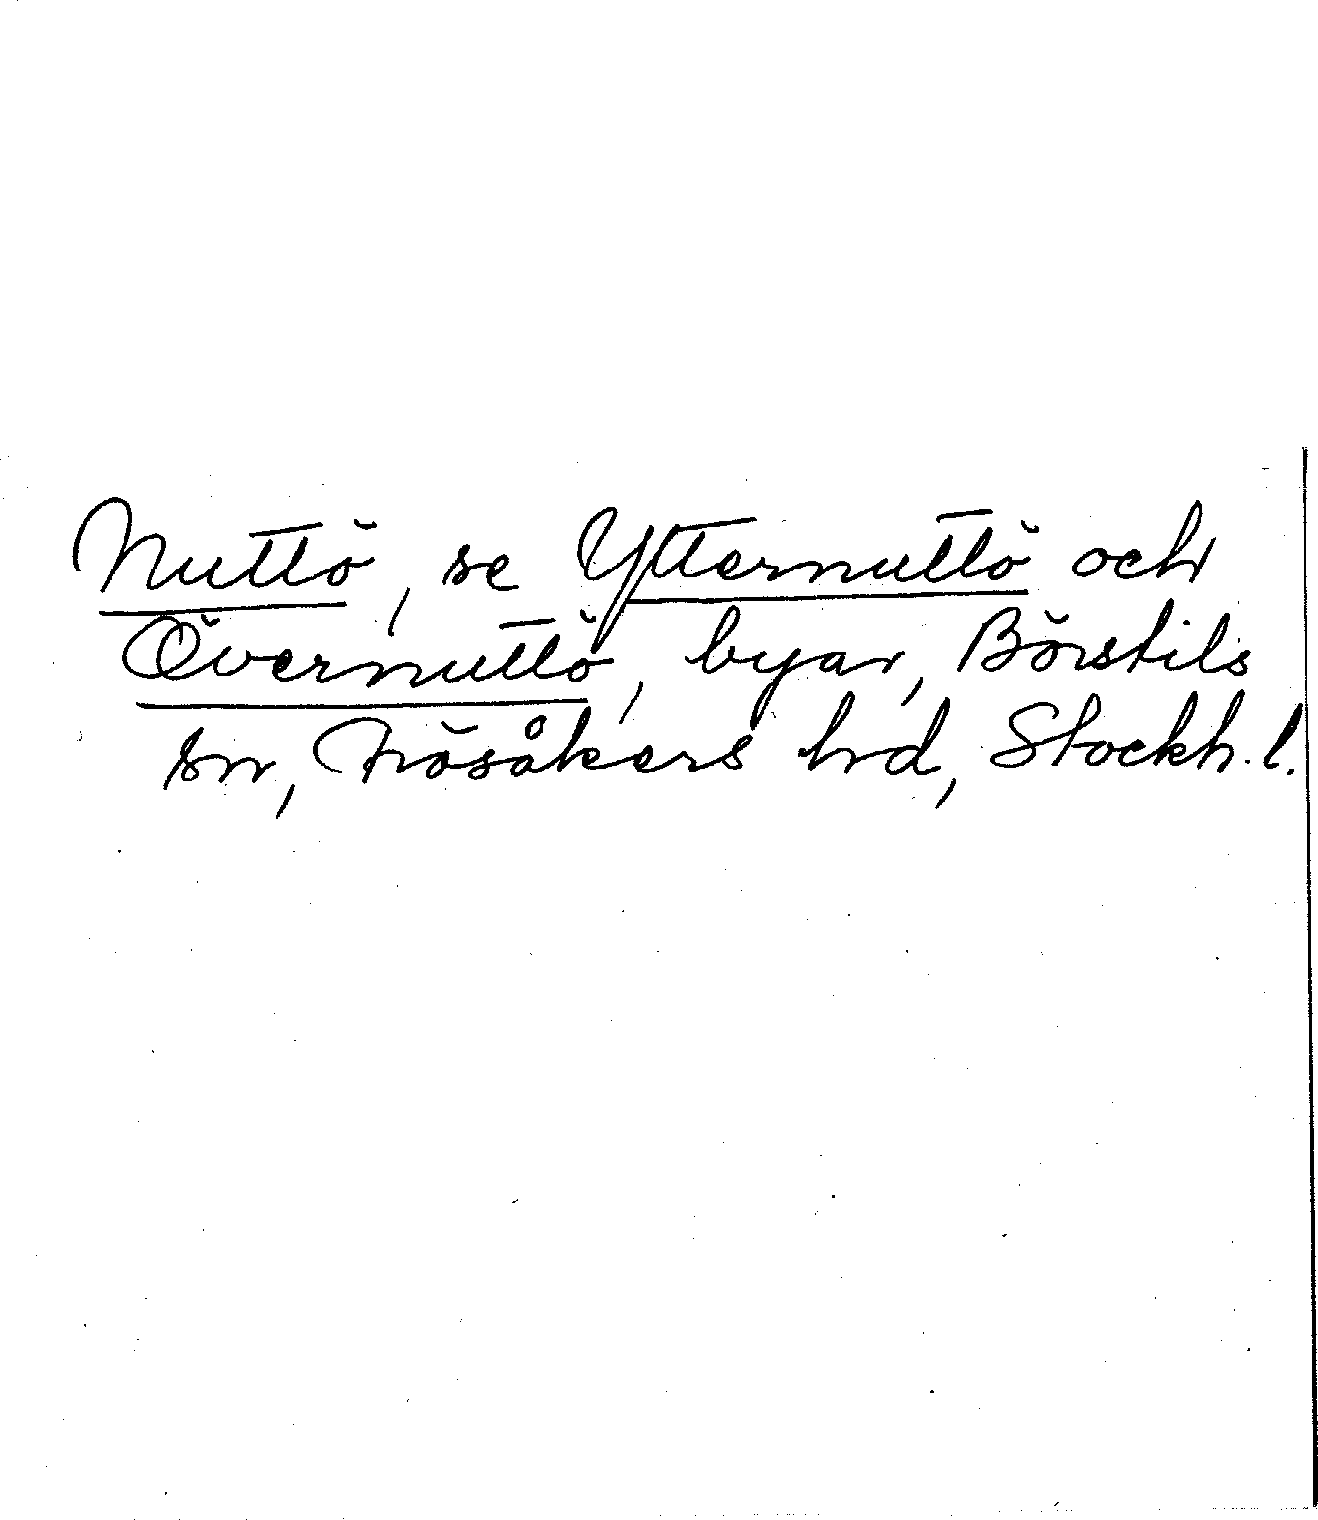 Nuttö, se Ytternuttö och
Övernuttö, byar, Börstils
sn, Frösåkers hd, Stockh. l.